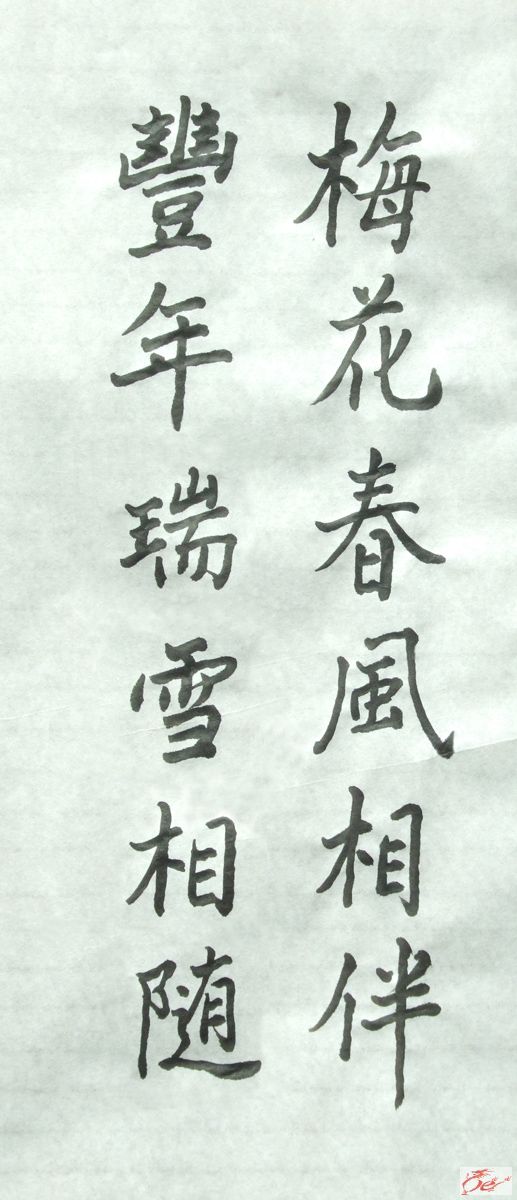 梅花春風相伴
豐年瑞雪相随